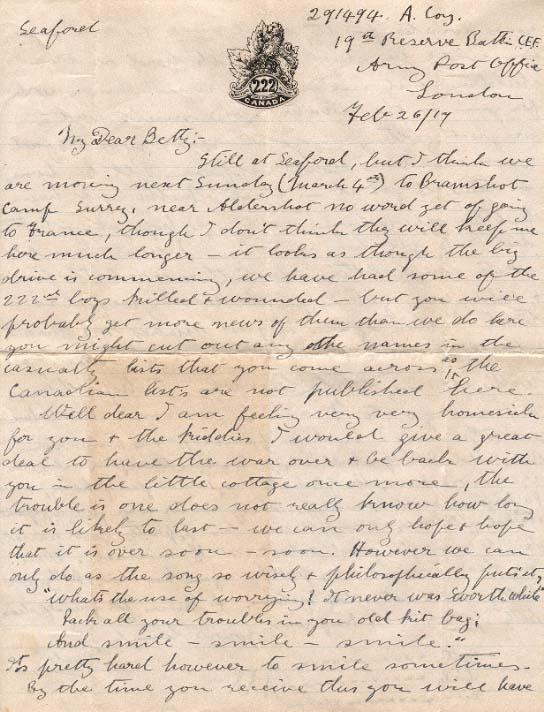 Seaford
291494. A. Coy.
19th Reserve Battn. CEF.
Army Post Office
London
Feb 26/17
222
CANADA
My Dear Betty:-
Still at Seaford, but I think we
are moving next Sunday (March 4th) to Bramshot
Camp Surrey, near Aldershot no word yet of going
to France, though I don't think they will keep me
here much longer – it looks as though the big
drive is commencing, we have had some of the
222nd boys killed & wounded – but you will
probably get more news of them than we do here
you might cut out any other names in the
casualty lists that you come across as the
Canadian list's are not published here. 15
Well dear I am feeling very very homesick
for you & the kiddies I would give a great
deal to have the war over & be back with
you in the little cottage once more, the
trouble is one does not really know how long
it is likely to last – we can only hope & hope
that it is over soon – soon. However we can
only do as the song so wisely & philosophically puts it,
"whats the use of worrying! It never was worth while"
Pack all your troubles in you old kit bag;
And smile – smile – smile."
Its pretty hard however to smile sometimes.
By the time you receive this you will have